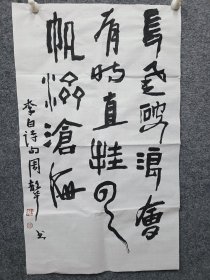 長風破浪會
有時直挂云
帆濟滄海
李白诗句周
书